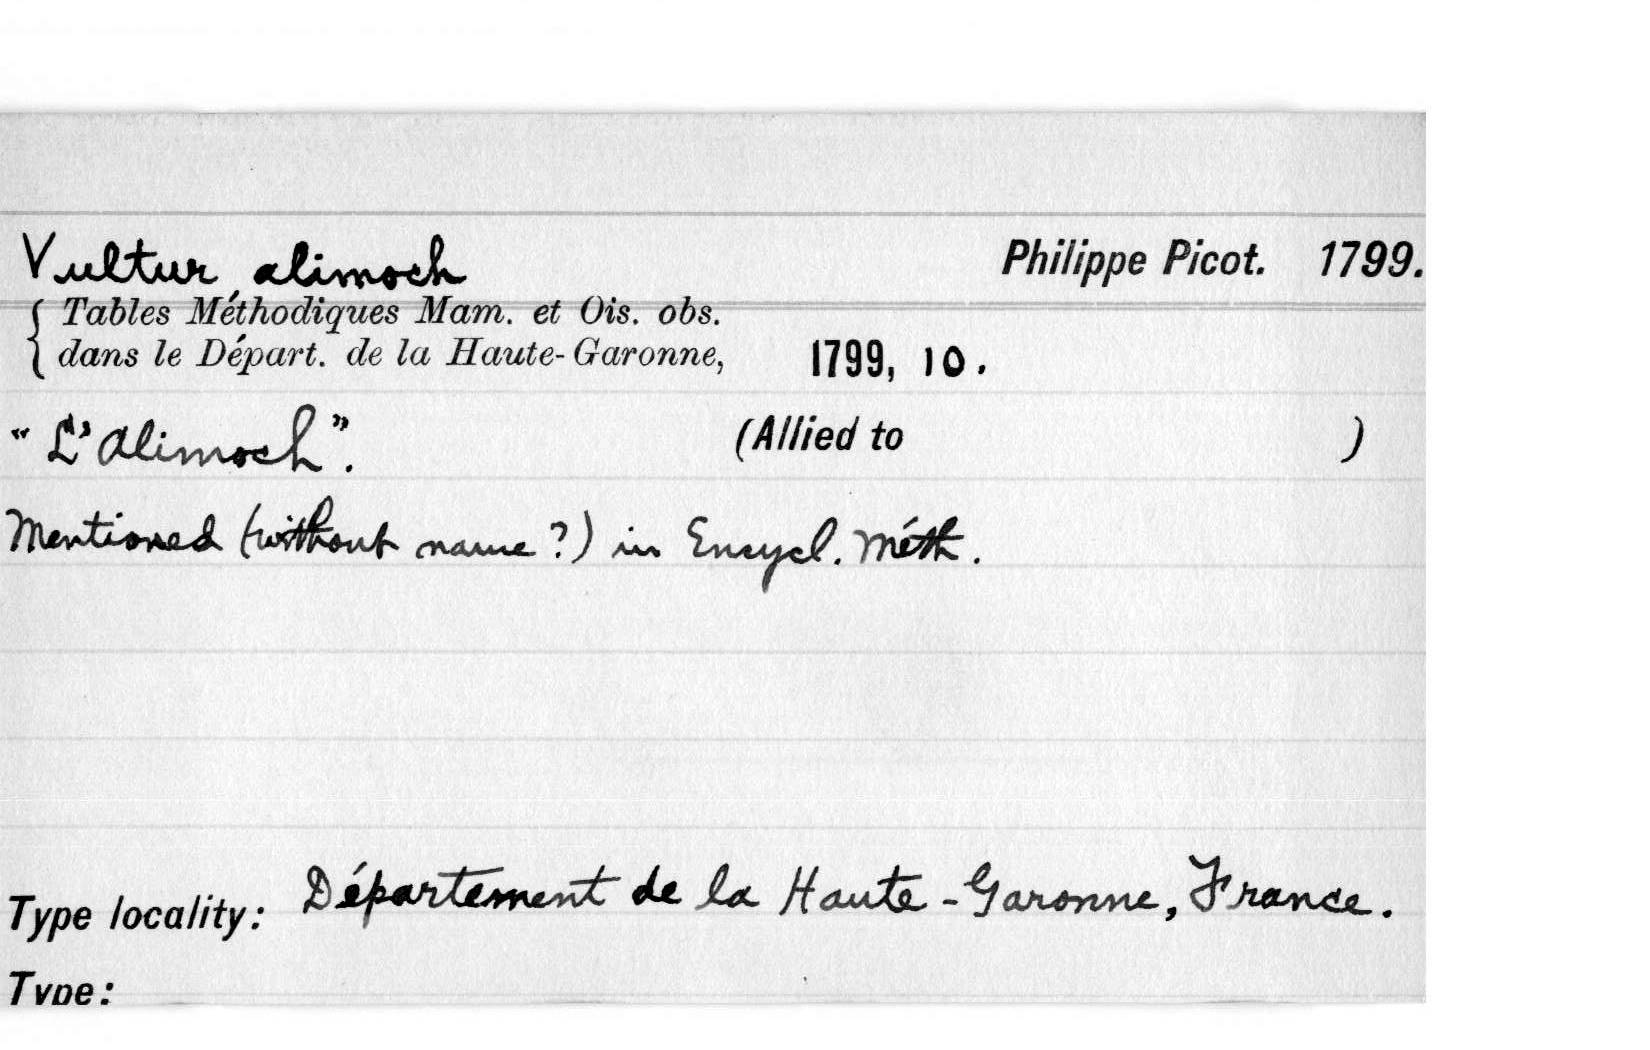 Vultur alimoch Philippe Picot. 1799.
Tables Méthodiques Mam. et Ois. obs.
dans le Départ. de la Haute-Garonne, 1799, 10.
"L'Alimoch". (Allied to )
Mentioned (without name?) in Encycl. Méth.
Type locality: Département de la Haute-Garonne, France.
Type: